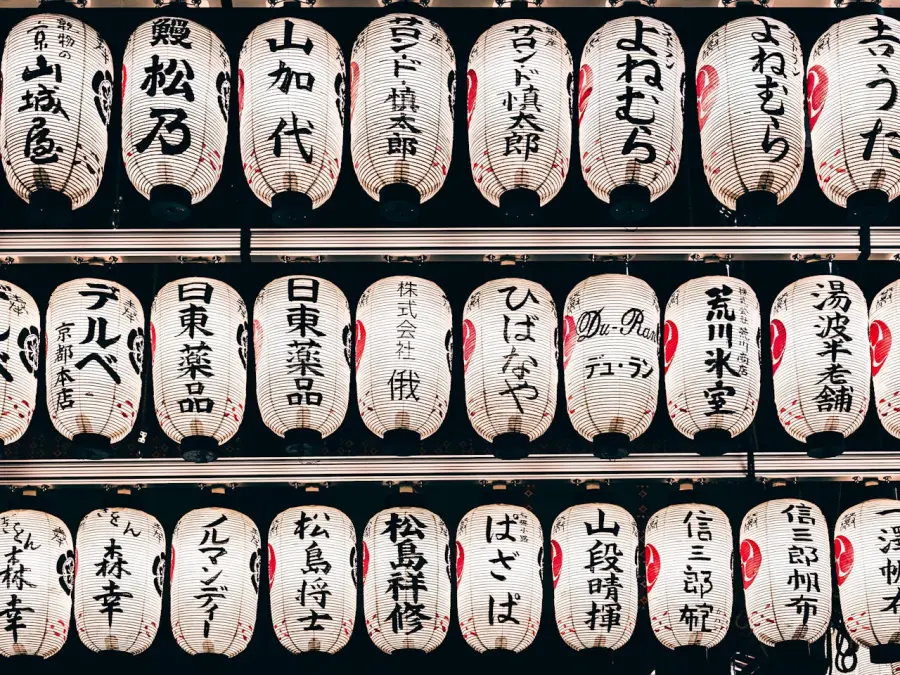 京山城屋
鰻
松乃
山加代
サロンド
慎太郎
サロンド
慎太郎
よねむら
よねむら
吉うた
デルベ
京都本店
日東薬品
日東薬品
株式会社
俄
ひばなや
Du-Ran
デュ・ラン
株式会社 荒川商店
荒川氷室
湯波半老舗
ぎをん
森幸
ぎをん
森幸
ノルマンディー
松島将士
松島祥修
ぱざぱ
山段晴揮
信三郎
信三郎帆布
一澤帆布